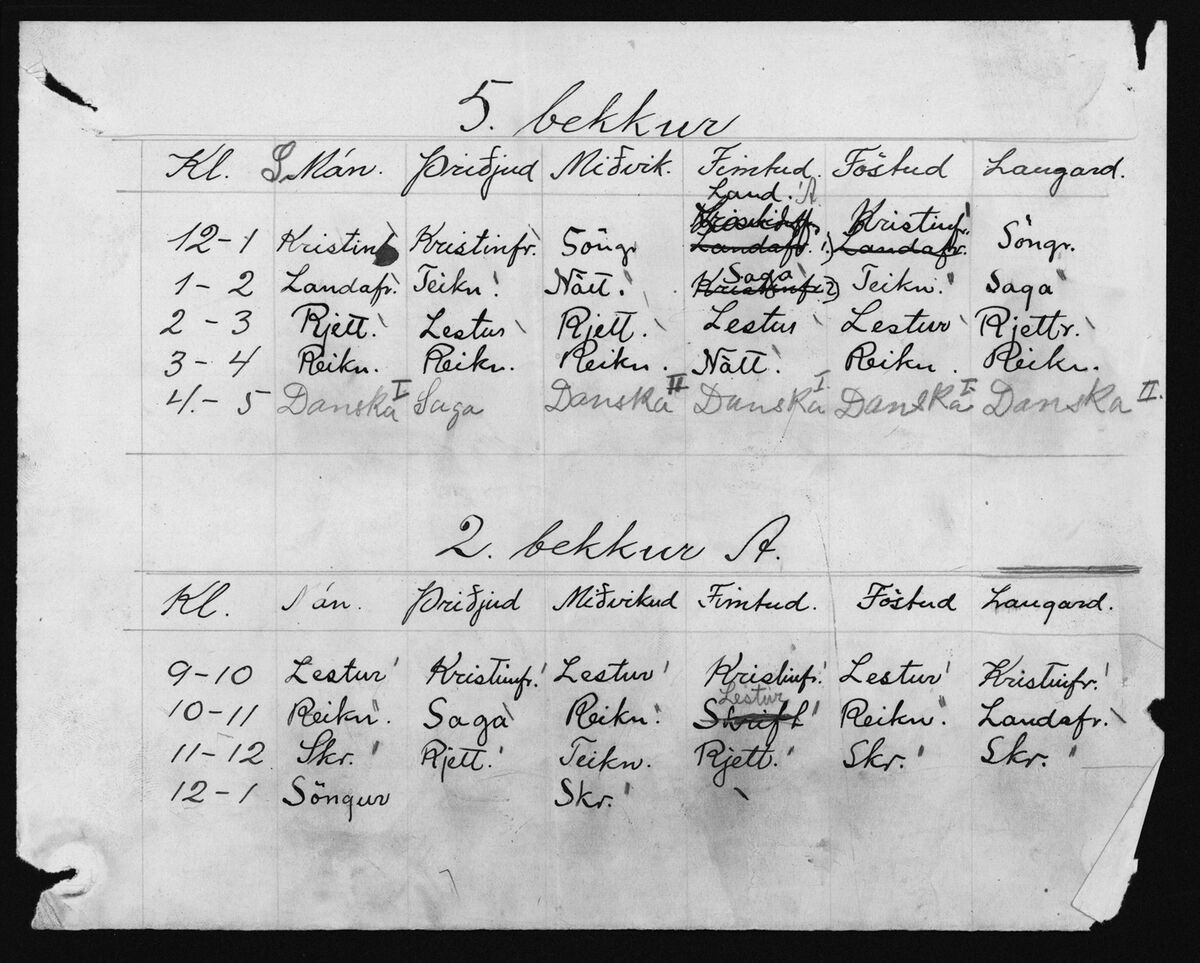 5. bekkur
Kl. Mán. Þriðjud Miðvik. Fimtud. Föstud Laugard.
Land. A
Kristinfr.
12-1 Kristinf Kristinfr. Söngr Landafr. 1) Landafr. Söngr.
Saga
1-2 Landafr. Teikn. Nátt. Kristinfr. 2) Teikn. Saga
2-3 Rjett. Lestur Rjett. Lestur Lestur Rjettr.
3-4 Reikn. Reikn. Reikn. Nátt. Reikn. Reikn.
4-5 Danska I Saga Danska II Danska I. Danska I. Danska II.
2. bekkur A.
Kl. Mán. Þriðjud Miðvikud Fimtud. Föstud Laugard.
9-10 Lestur Kristinfr. Lestur Kristinfr. Lestur Kristinfr.
Lestur
10-11 Reikn. Saga Reikn. Skrift Reikn. Landafr.
11-12 Skr. Rjett. Teikn. Rjett. Skr. Skr.
12-1 Söngur Skr.